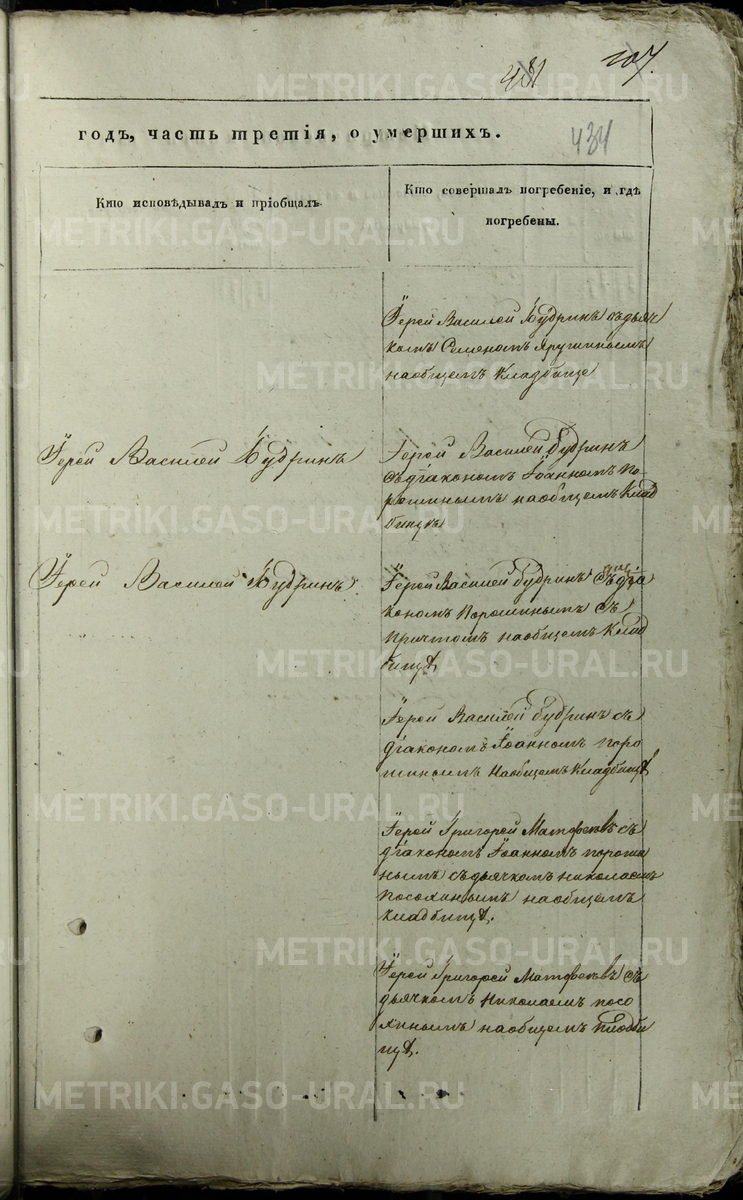 481
434
годъ, часть третія, о умершихъ.
Кто исповѣдывалъ и пріобщалъ.
Кто совершалъ погребеніе, и гдѣ
погребены.
Іерей Василей Кудринъ съдьяч
комъ Семеномъ Яругинымъ
наобщемъ Кладбище
Іерей Василей Кудринъ
Іерей Василей Кудринъ
съдіакономъ Іоанномъ По
рошинымъ наобщемъ Клад
бищѣ
Іерей Василей Кудринъ
Іерей Василей Кудринъ съдіа
кономъ Порошинымъ съ
Причтомъ наобщемъ Клад
бищѣ,
Іерей Василей Кудринъ съ
діакономъ Іоанномъ Поро
шинымъ наобщемъ Кладбищѣ
Іерей Григорей Матфеевъ съ
діакономъ Іоанномъ пороши
нымъ съдьячкомъ николаемъ
наобщемъ
кладбищѣ.
Іерей Григорей Матфеевъ съ
дьячкомъ Николаемъ
наобщемъ кладби
щѣ.
METRIKI.GASO-URAL.RU